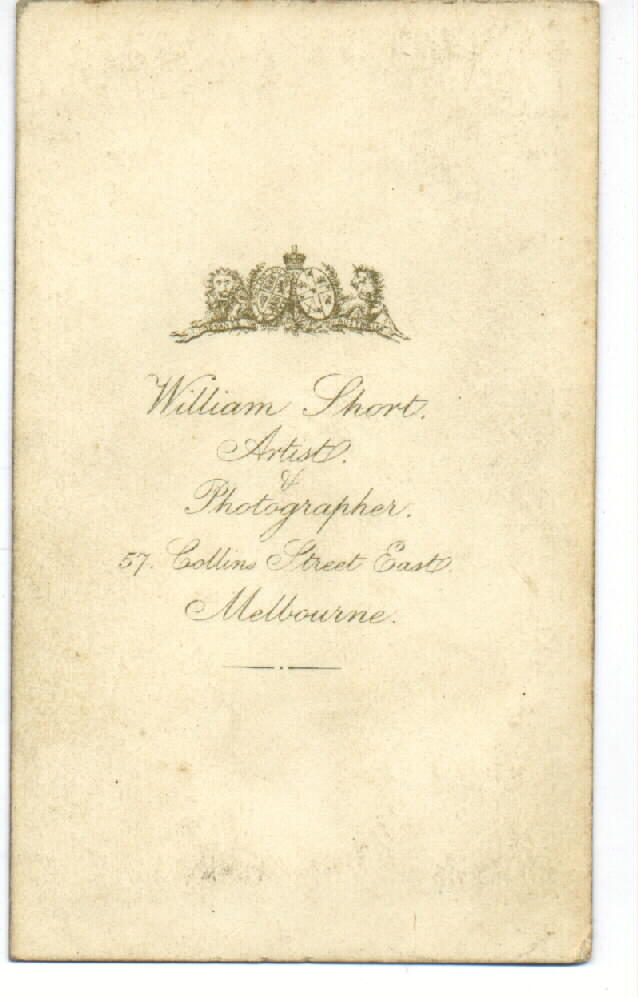 William Short.
Artist.
&
Photographer.
57. Collins Street East.
Melbourne.